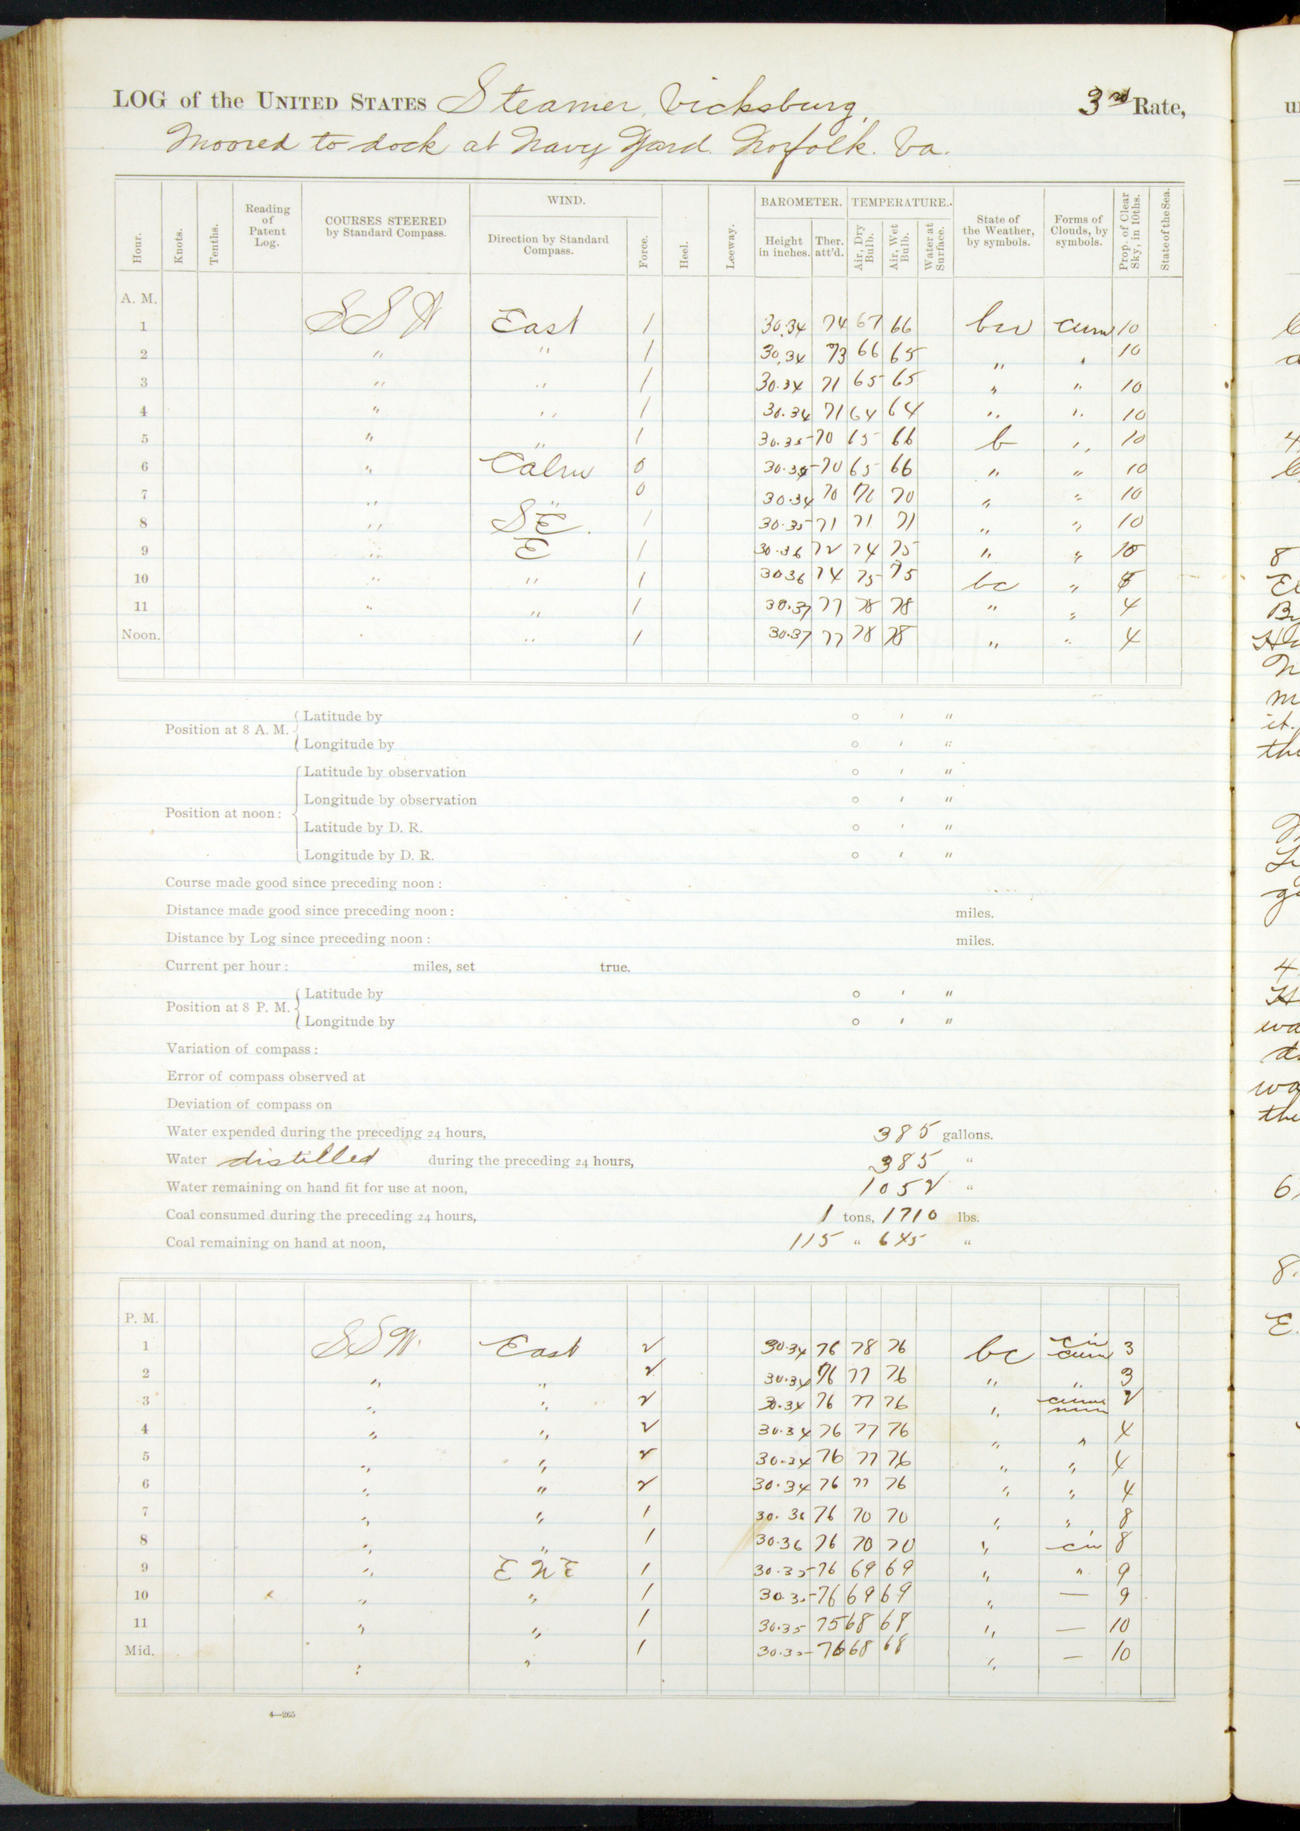 LOG of the UNITED STATES Steamer, Vicksburg, 3rd Rate,
Moored to dock at Navy Yard. Norfolk. Va.
Hour. Knots. Tenths. Reading of Patent Log. COURSES STEERED by Standard Compass. WIND. Direction by Standard Compass. Force. Heel. Leeway. BAROMETER. Height in inches. Ther. att'd. TEMPERATURE. Air, Dry Bulb. Air, Wet Bulb. Water at Surface. State of the Weather, by symbols. Forms of Clouds, by symbols. Prop. of Clear Sky, in 10ths. State of the Sea.
A. M.
1 SSW East 1 30.34 74 67 66 bcv cum 10
2 " " 1 30.34 73 66 65 " " 10
3 " " 1 30.34 71 65 65 " " 10
4 " " 1 30.34 71 64 64 " " 10
5 " " 1 30.35 70 65 66 b " 10
6 " Calm 0 30.34 70 65 66 " " 10
7 " " 0 30.34 70 70 70 " " 10
8 " SE. 1 30.35 71 71 71 " " 10
9 " E 1 30.36 72 74 75 " " 10
10 " " 1 3036 74 75 75 bc "
11 " " 1 30.37 77 78 78 " " 4
Noon. " 1 30.37 77 78 78 " " 4
Position at 8 A. M. Latitude by ° ' "
Longitude by ° ' "
Position at noon: Latitude by observation ° ' "
Longitude by observation ° ' "
Latitude by D. R. ° ' "
Longitude by D. R. ° ' "
Course made good since preceding noon:
Distance made good since preceding noon: miles.
Distance by Log since preceding noon: miles.
Current per hour: miles, set true.
Position at 8 P. M. Latitude by ° ' "
Longitude by ° ' "
Variation of compass:
Error of compass observed at
Deviation of compass on
Water expended during the preceding 24 hours, 385 gallons.
Water distilled during the preceding 24 hours, 385 "
Water remaining on hand fit for use at noon, 1052 "
Coal consumed during the preceding 24 hours, 1 tons, 1710 lbs.
Coal remaining on hand at noon, 115 " 645 "
P. M.
1 SSW. East 2 30.34 76 78 76 bc cir cum 3
2 " " 2 30.34 76 77 76 " " 3
3 " " 2 30.34 76 77 76 " cum nim 2
4 " " 2 30.34 76 77 76 " " 4
5 " " 2 30.34 76 77 76 " " 4
6 " " 2 30.34 76 77 76 " " 4
7 " " 1 30.36 76 70 70 " " 8
8 " " 1 30.36 76 70 70 " cir 8
9 " ENE 1 30.35 76 69 69 " " 9
10 " " 1 30.35 76 69 69 " — 9
11 " " 1 30.35 75 68 68 " — 10
Mid. " " 1 30.35 76 68 68 " — 10
4—265